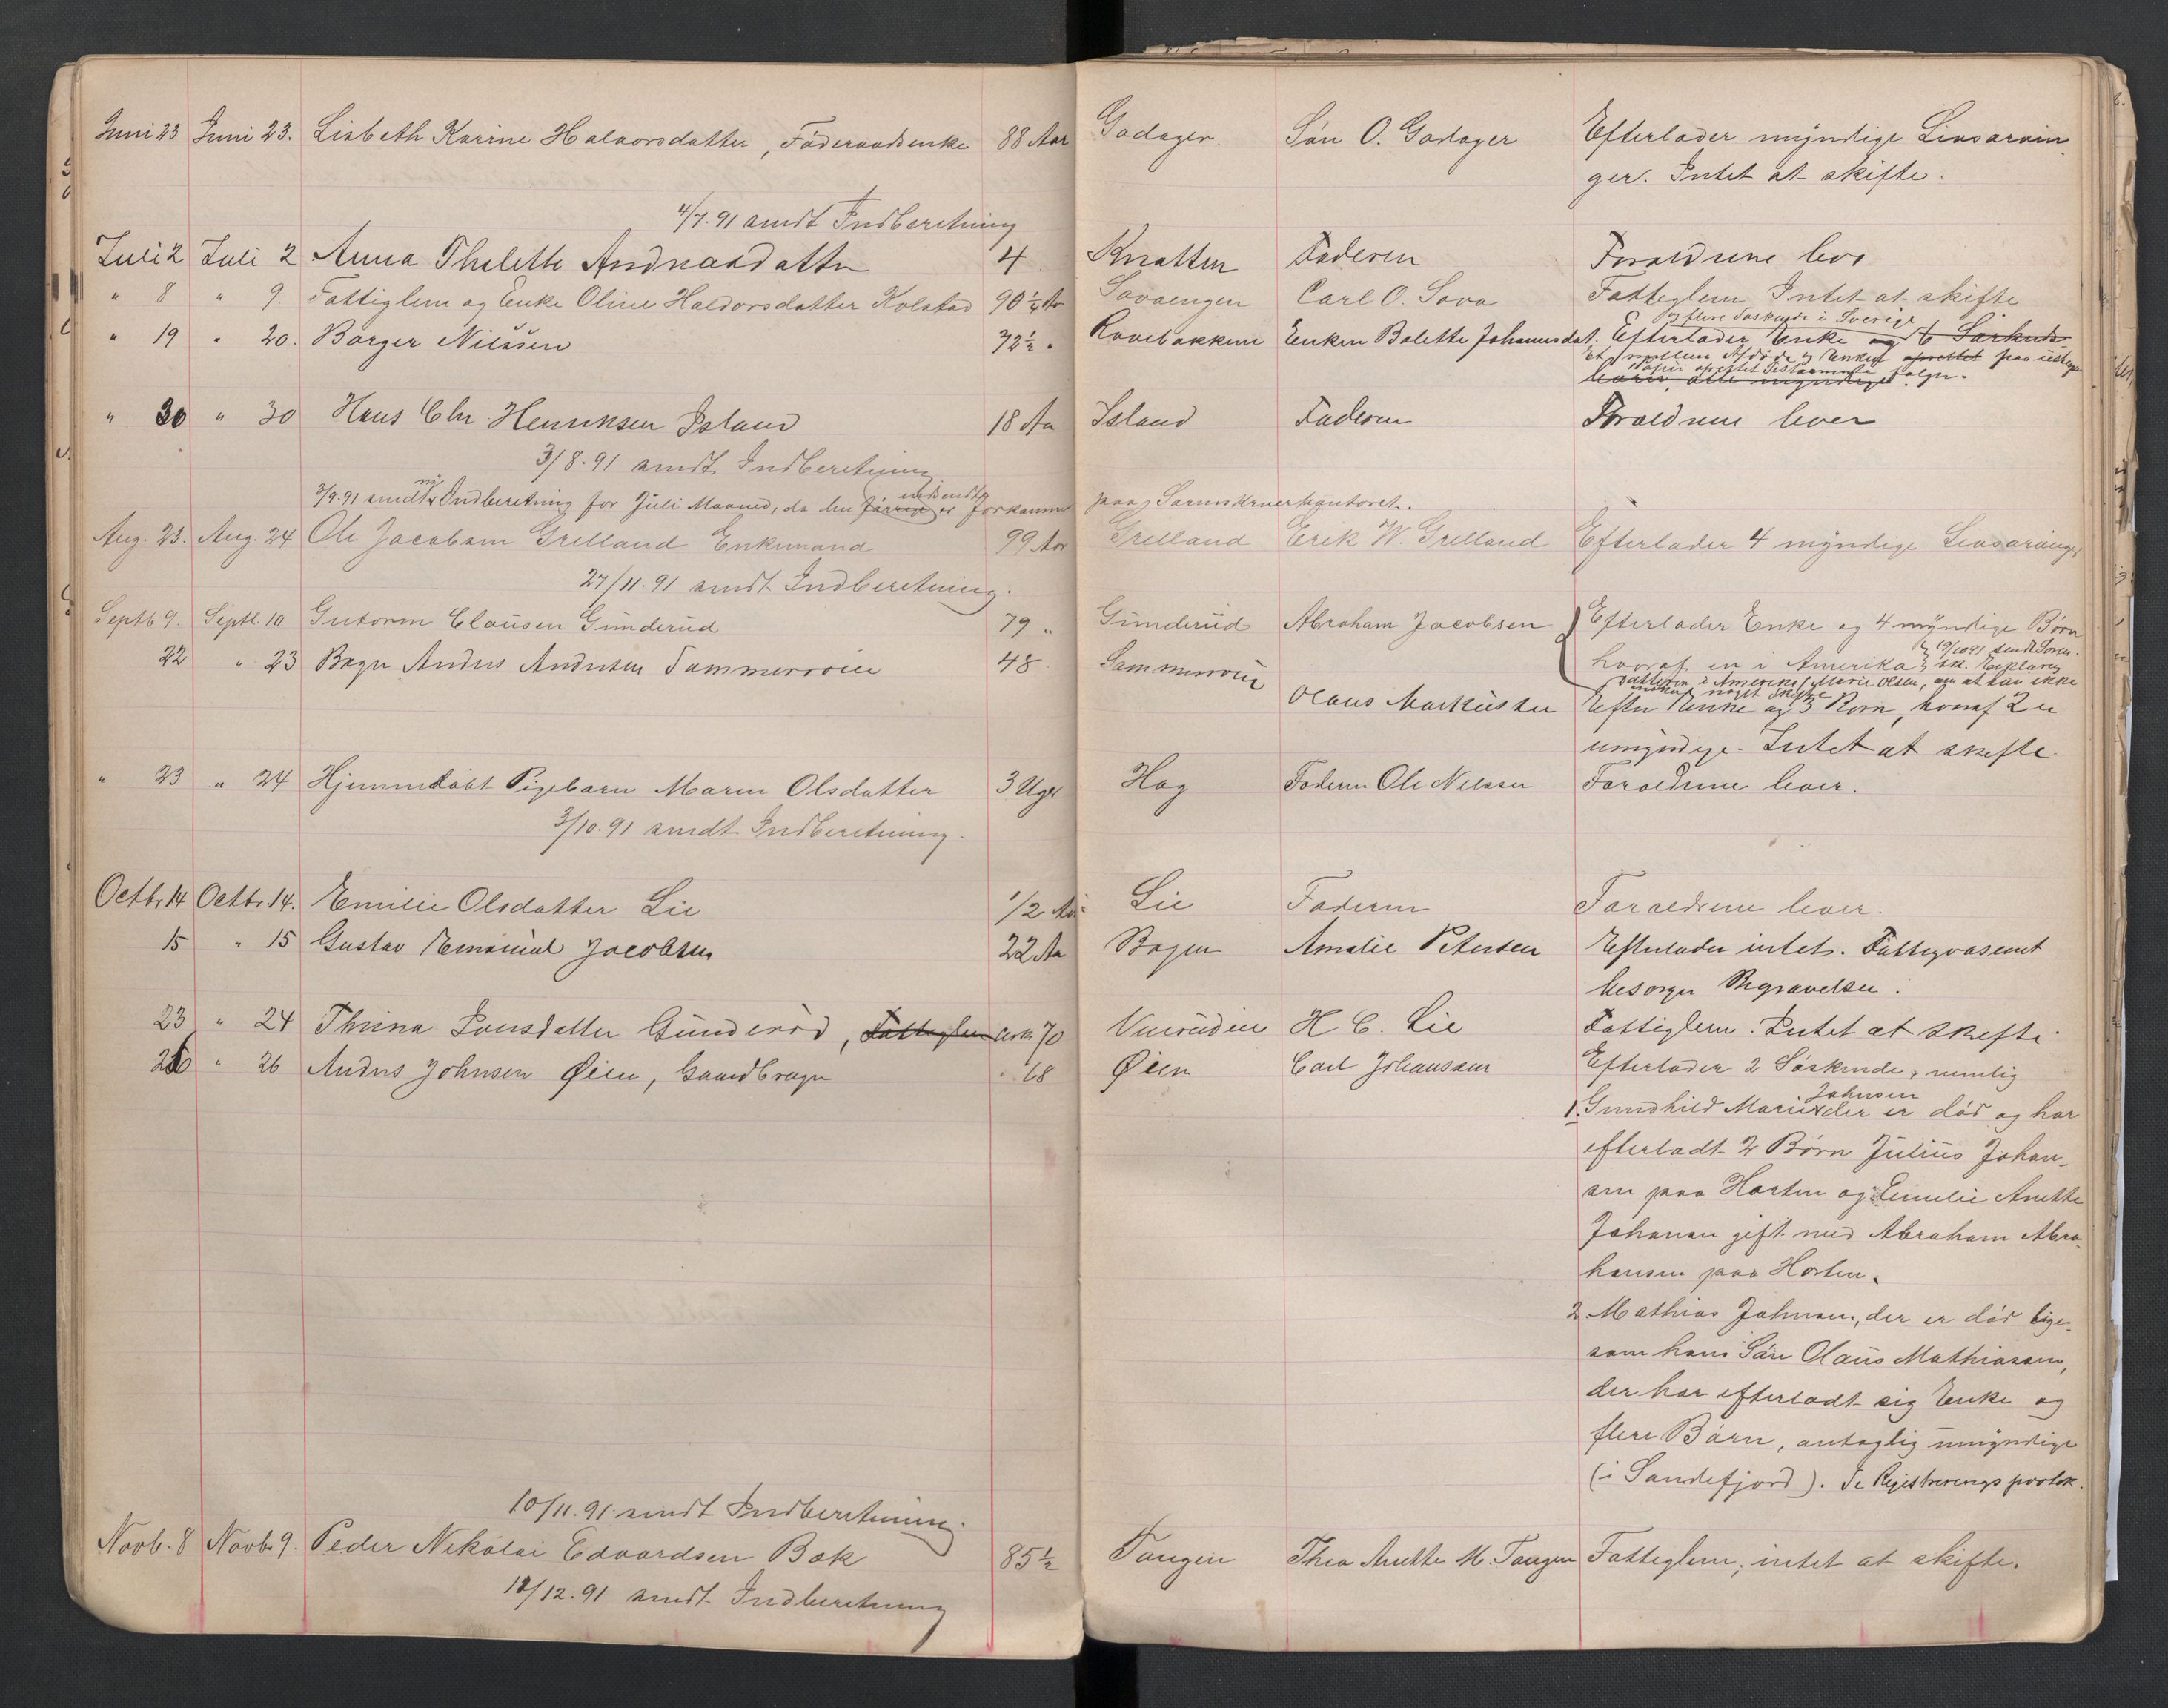 Juni 23 Juni 23. Lisbeth Karine Halvorsdatter, Föderaadsenke 88 Aar Gadager. Sön O. Gadager Efterlader myndige Livsarvin
ger. Intet at skifte.
4/7.91 sendt Indberetning
Juli 2 Juli 2 Anna Thalette Andreasdatter 4 Knatten Faderen Foraeldrene leve
" 8 " 9. Fattiglem og Enke Oline Haldorsdatter Kolstad 90 1/4 Ar Savaengen Carl O. Sava Fattiglem Intet at skifte
og flere Söskende i Sverige
" 19 " 20. Borger Nilssen 72 1/2 " Rovebakken Enken Bolette Johannesdat. Efterlader Enke og 6 Sörkende
Et mellem Afdöde og Enken oprettet paa ustemp
Papir oprettet Testamente fölger.
levere, alle myndige
" 30 " 30 Hans Chr. Henriksen Island 18 Aar Island Faderen Foraeldrene lever
3/8.91 sendt Indberetning
3/9.91 sendt ny Indberetning for Juli Maaned, da den förrige indsendte er forkommen paa Sorenskriverkontoret.
Aug. 23. Aug. 24 Ole Jacobsen Grelland Enkemand 99 Aar Grelland Erik W. Grelland Efterlader 4 myndige Livsarvinger
27/11.91 sendt Indberetning.
Septb 9. Septb. 10 Gutorm Clausen Gunderud 79 " Gunderud Abraham Jacobsen Efterlader Enke og 4 myndige Börn
19/10 91 sendt Soren.
hvoraf en i Amerika sk. Erklaering
datteren i Amerika Marie Olsen, om at hun ikke
önsker noget Skifte
22 " 23 Bager Anders Andersen Sommerroen 48 Sommerroen Olaus Markussen Efter Enke og 3 Börn, hvoraf 2 er
umyndige. Intet at skifte.
" 23 " 24 Hjemmedöbt Pigebarn Maren Olsdatter 3 Uger Hag Faderen Ole Nilssen Foraeldrene lever.
3/10.91 sendt Indberetning.
Octbr 14 Octbr. 14. Emilie Olsdatter Lie 1/2 Aar Lie Faderen Foraeldrene lever.
15 " 15 Gustav Emanuel Jacobsen 22 Aar Bogen Amalie Petersen Efterlader intet. Fattigvaesenet
besorger Begravelsen.
23 " 24 Thrina Iversdatter Gunderöd, Fattiglem cirk. 70 H C. Lie Fattiglem. Intet at skifte.
26 " 26 Anders Johnsen Øien, Gaardbruger " 68 Øien Carl Johanssen Efterlader 2 Söskende, nemlig
1. Gundhild Marie Johnsen der er död og har
efterladt 2 Börn Julius Johan-
sen paa Horten og Emilie Anette
Johansen gift med Abraham Abra-
hamsen paa Horten.
2. Mathias Johnsen, der er död lige-
som hans Sön Olaus Mathiassen,
der har efterladt sig Enke og
flere Börn, antaglig umyndige
(i Sandefjord). Se Registreringsprotok.
10/11.91 sendt Indberetning.
Novb. 8 Novb. 9. Peder Nikolai Edvardsen Bak 85 1/2 Tangen Thea Anette M. Tangen Fattiglem, intet at skifte.
12/12.91 sendt Indberetning